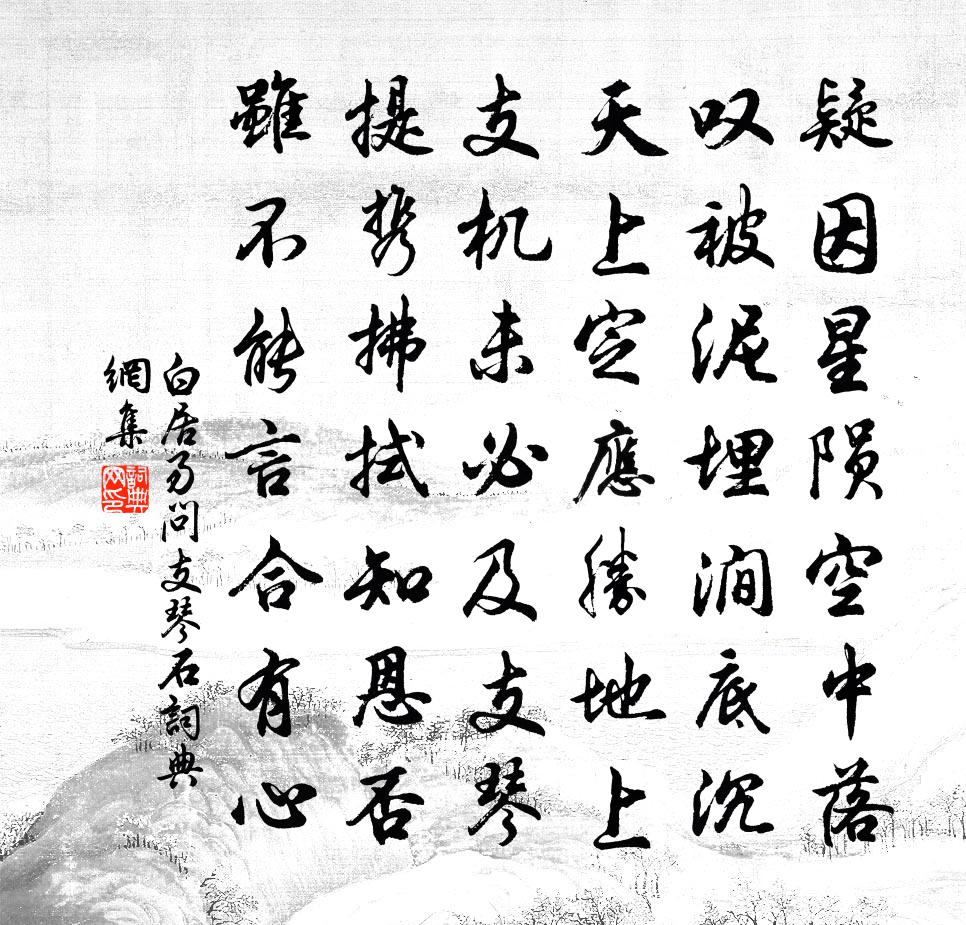 疑因星陨空中落
叹被泥埋涧底沉
天上定應勝地上
支机未必及支琴
提携拂拭知恩否
雖不能言合有心
白居易问支琴石詞典
網集
詞典
网印